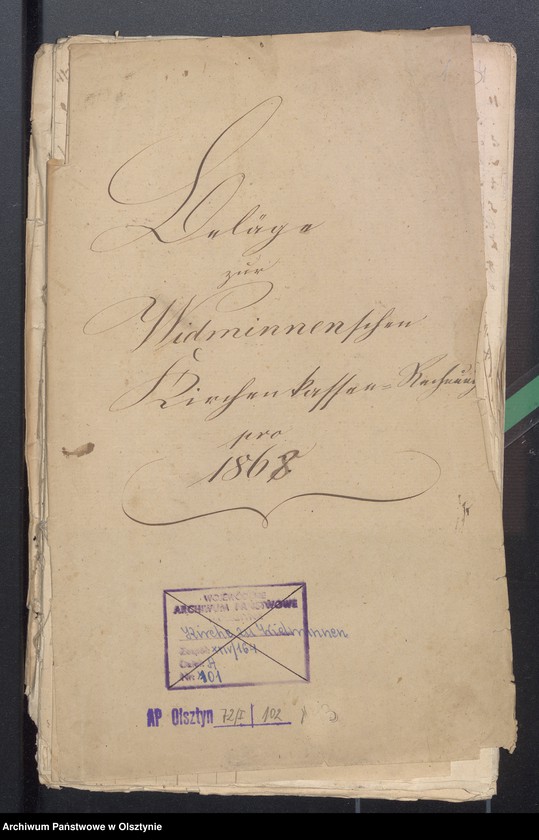 Beläge
zur
Widminnenschen
Kirchenkassen-Rechnung
pro
1868
WOJEWÓDZKIE
ARCHIWUM PAŃSTWOWE
Kirche zu Widminnen
Zespół XIV/164
Dział A
Nr. 101
AP Olsztyn 72/I / 102
Archiwum Państwowe w Olsztynie